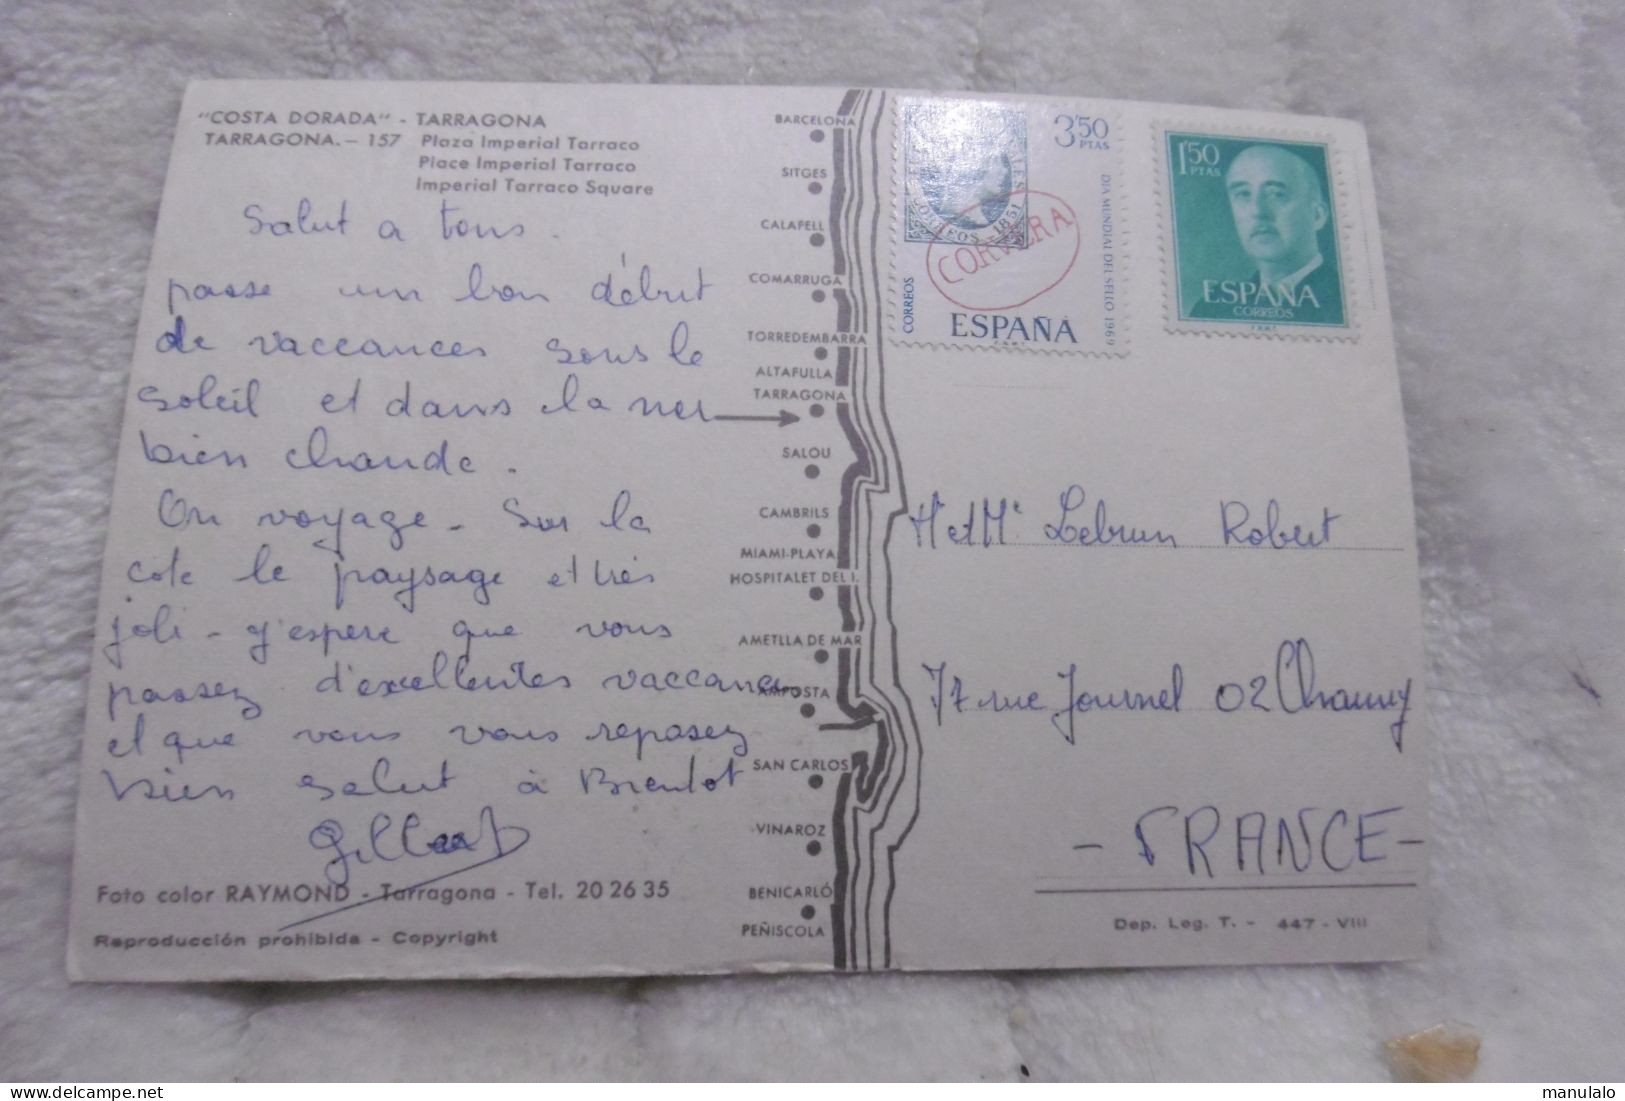 "COSTA DORADA" - TARRAGONA
TARRAGONA. - 157 Plaza Imperial Tarraco
Place Imperial Tarraco
Imperial Tarraco Square
Salut a tous.
passe un bon début
de vaccances sous le
soleil et dans la mer
bien chaude.
On voyage - sur la
cote le paysage et très
joli - J'espere que vous
passez d'excellentes vaccances
et que vous vous reposez
bien salut à Bientot
Gilbert
Foto color RAYMOND - Tarragona - Tel. 20 26 35
Reproducción prohibida - Copyright
BARCELONA
SITGES
CALAFELL
COMARRUGA
TORREDEMBARRA
ALTAFULLA
TARRAGONA
SALOU
CAMBRILS
MIAMI-PLAYA
HOSPITALET DEL I.
AMETLLA DE MAR
AMPOSTA
SAN CARLOS
VINAROZ
BENICARLÓ
PEÑISCOLA
3'50
PTAS
CORREOS 1851
CORVERA
CORREOS
DIA MUNDIAL DEL SELLO 1969
ESPAÑA
1'50
PTAS
ESPAÑA
CORREOS
Mr et Me Lebrun Robert
77 rue Journel 02 Chauny
- FRANCE -
Dep. Leg. T. - 447 - VIII
manulalo